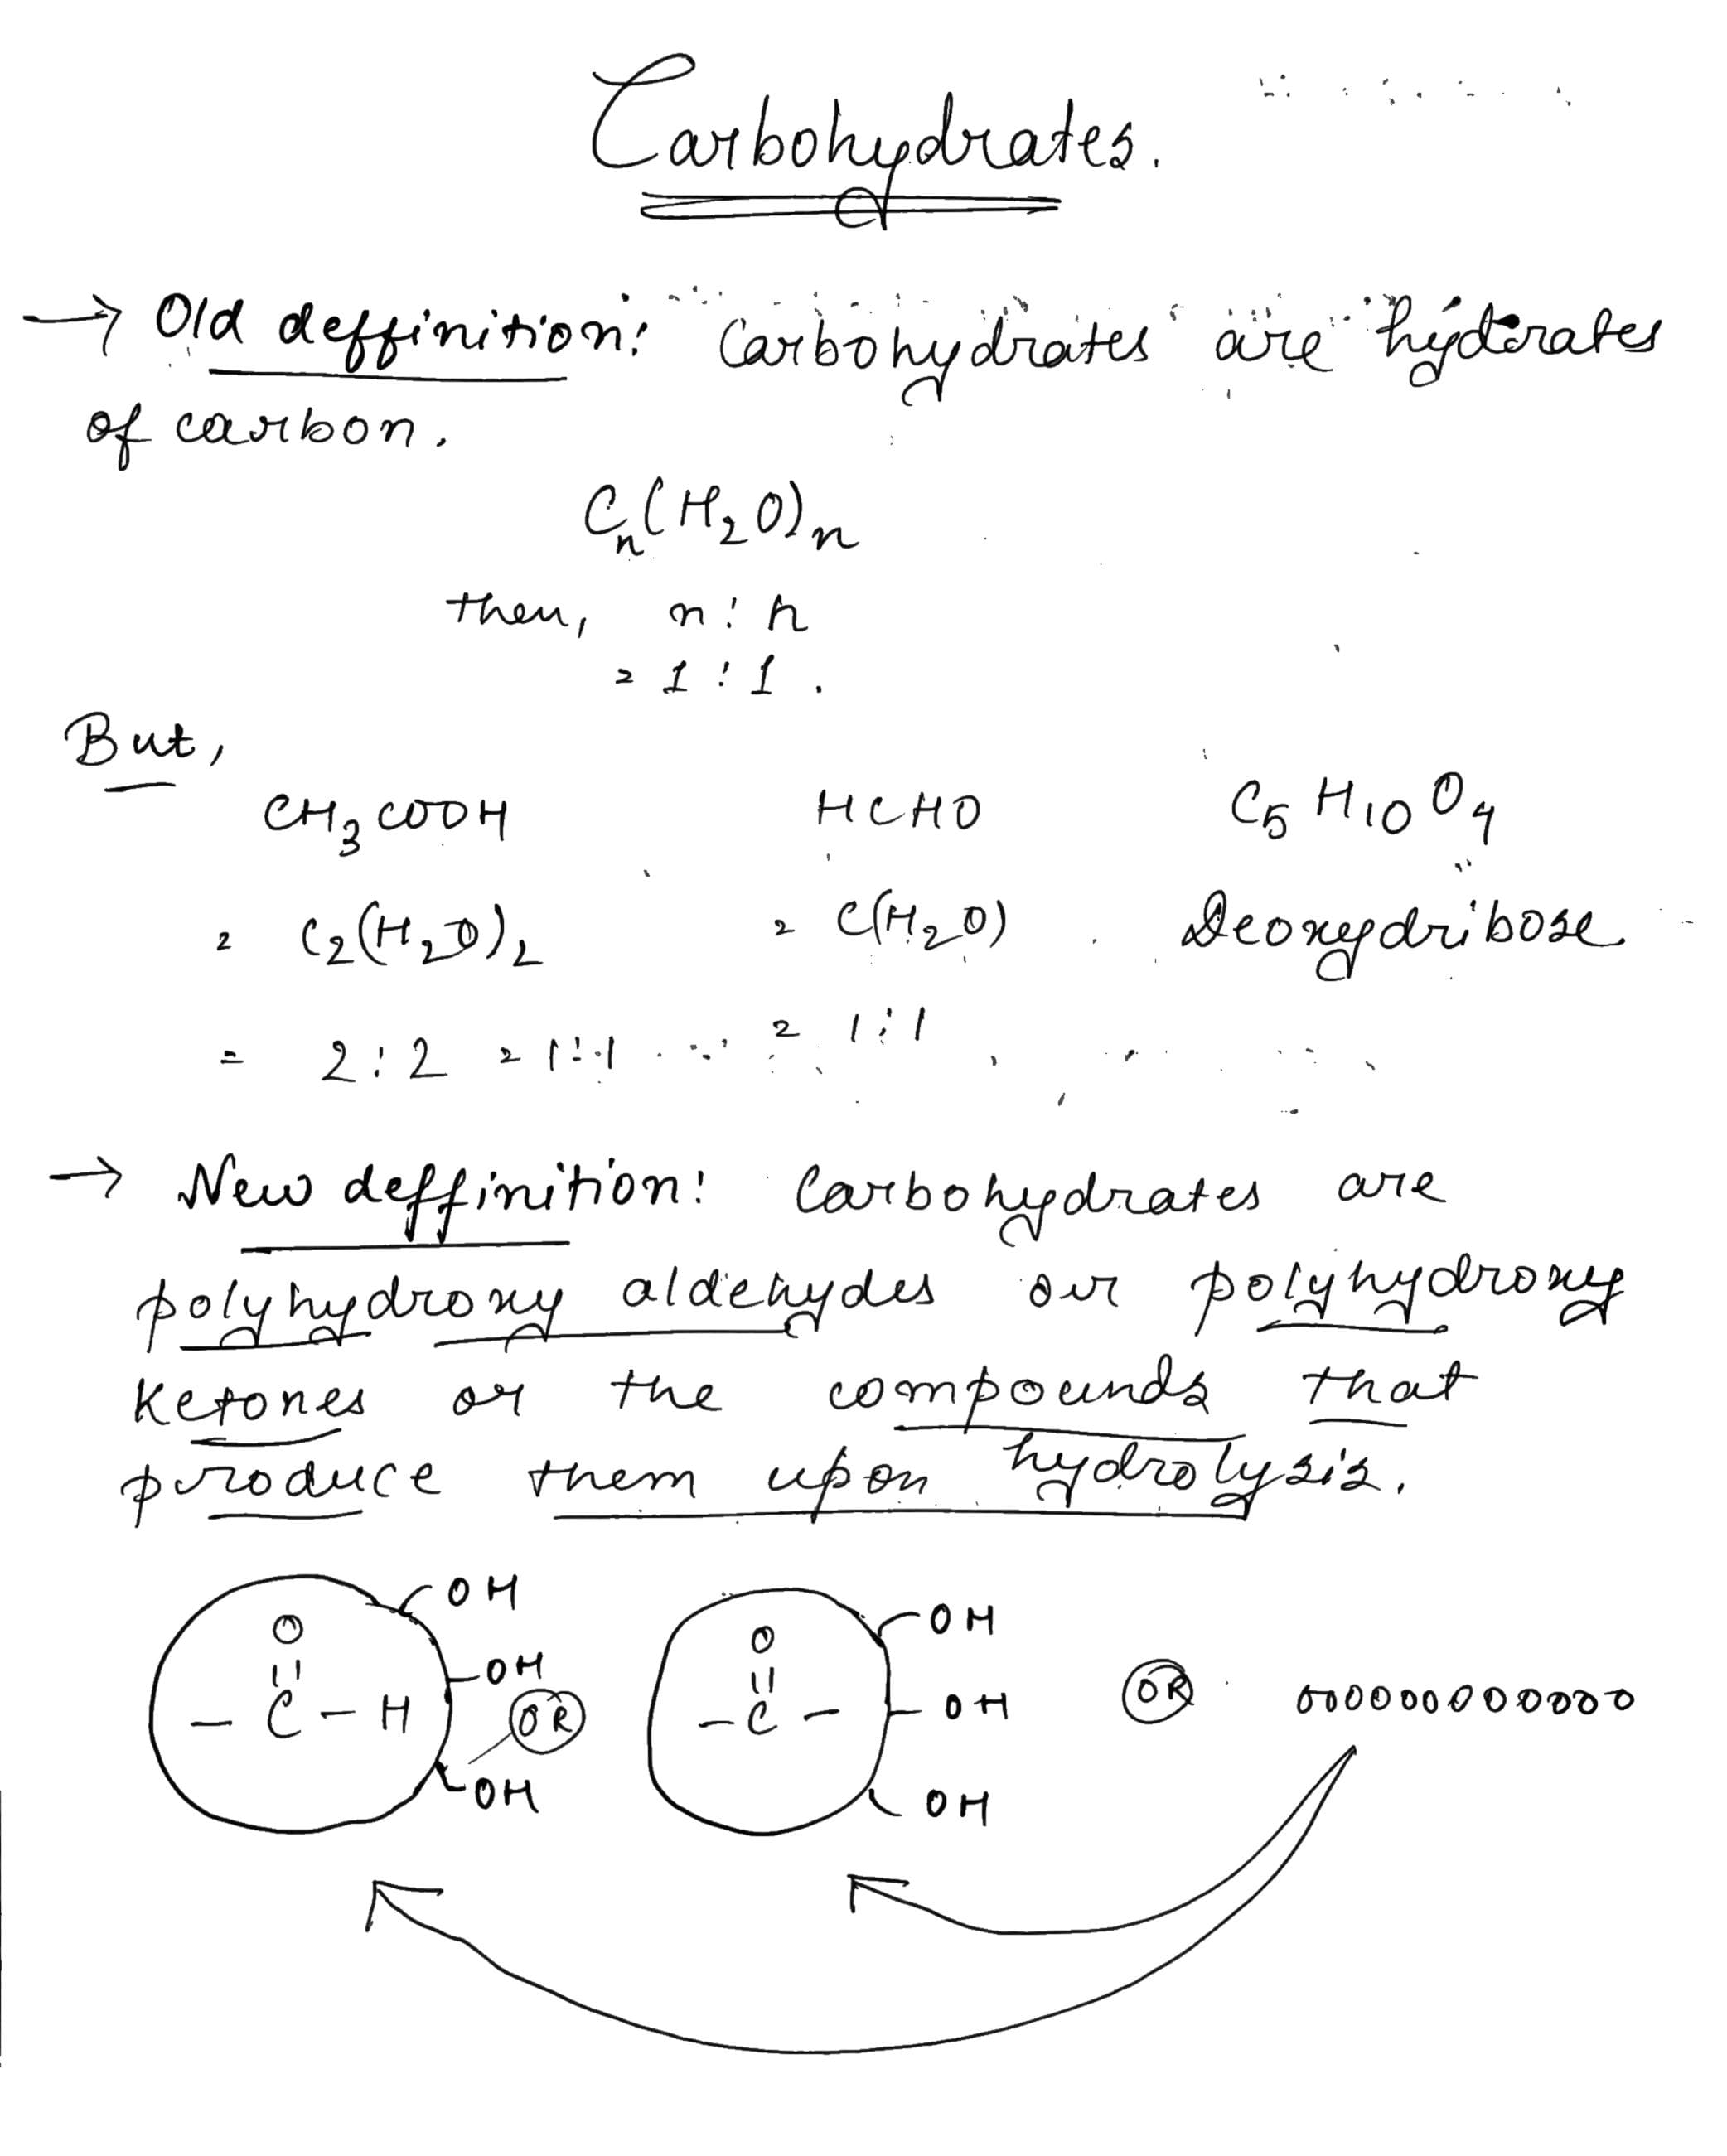 Carbohydrates.
→ Old deffinition: Carbohydrates are hydrates
of carbon.
Cn(H2O)n
then, n : n
= 1 : 1 .
But,
CH3COOH HCHO C5H10O4
= C2(H2O)2 = C(H2O) Deoxydribose
= 2 : 2 = 1 : 1 = 1 : 1
→ New deffinition: Carbohydrates are
polyhydroxy aldehydes or polyhydroxy
ketones or the compounds that
produce them upon hydrolysis.
OH
O OH
|| OH O
- C - H OR || OR
OH - C - OH
OH